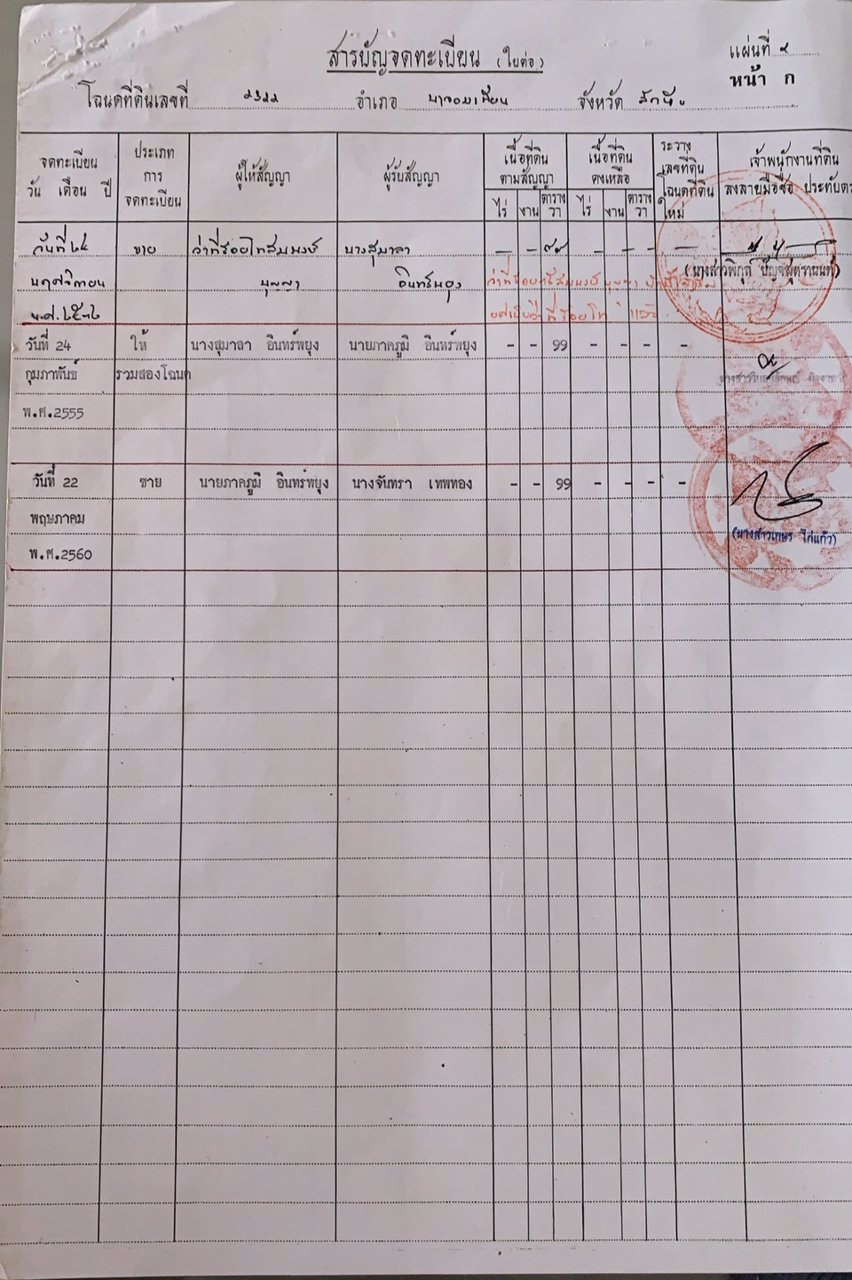 สารบัญจดทะเบียน (ใบต่อ)
แผ่นที่ ๙
หน้า ก
โฉนดที่ดินเลขที่ ๒๖๒๒ อำเภอ จังหวัด
จดทะเบียน วัน เดือน ปี
ประเภท การ จดทะเบียน
ผู้ให้สัญญา
ผู้รับสัญญา
เนื้อที่ดิน ตามสัญญา
เนื้อที่ดิน คงเหลือ
ไร่ งาน ตาราง วา ไร่ งาน ตาราง วา
ระวาง เลขที่ดิน โฉนดที่ดิน ใหม่
เจ้าพนักงานที่ดิน ลงลายมือชื่อ ประทับตรา
วันที่ ขาย ว่าที่ร้อยโทสมพงษ์ นางสุมาลา – – ๙๙ – – – –
พฤศจิกายน บุญญา อินทร์พยุง ว่าที่ร้อย
พ.ศ. ยศเป็นว่าที่ร้อยโท แล้ว
วันที่ 24 ให้ นางสุมาลา อินทร์พยุง นายภาคภูมิ อินทร์พยุง - - 99 - - - -
กุมภาพันธ์ รวมสองโฉนด
พ.ศ.2555
วันที่ 22 ขาย นายภาคภูมิ อินทร์พยุง นางจันทรา เทพทอง - - 99 - - - -
พฤษภาคม
พ.ศ.2560